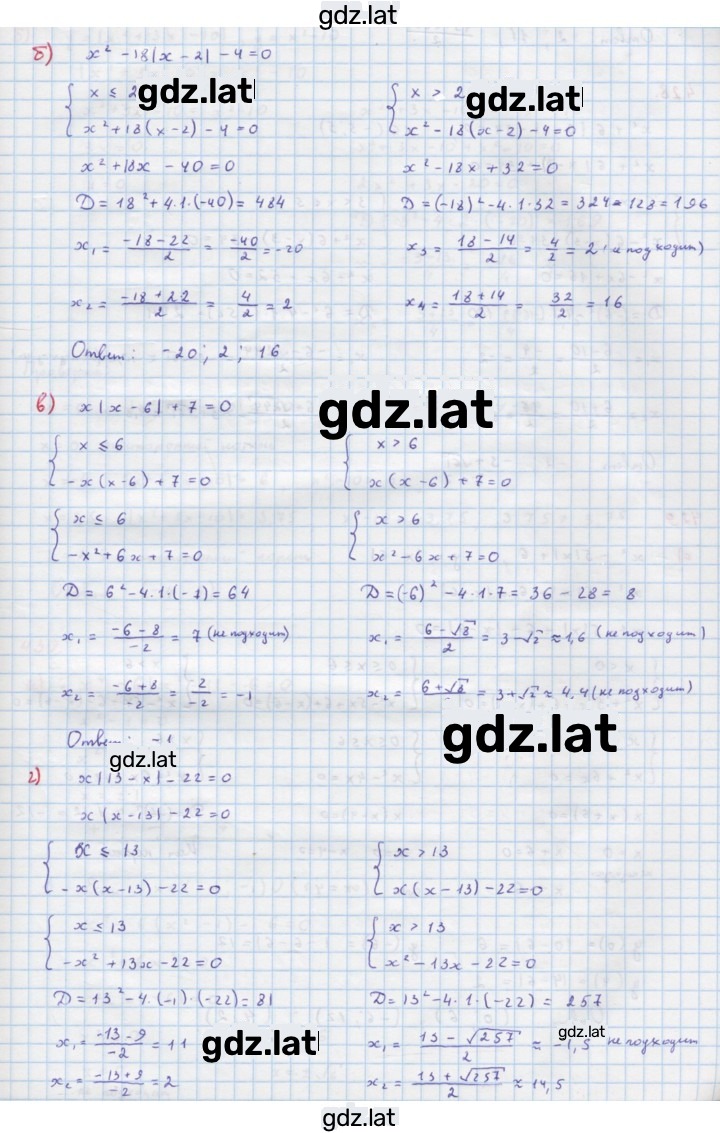 gdz.lat
б) x² - 18|x - 2| - 4 = 0
{ x ≤ 2 gdz.lat
x² + 18(x - 2) - 4 = 0
x² + 18x - 40 = 0
D = 18² + 4·1·(-40) = 484
x₁ = (-18 - 22)/2 = -40/2 = -20
x₂ = (-18 + 22)/2 = 4/2 = 2
{ x > 2 gdz.lat
x² - 18(x - 2) - 4 = 0
x² - 18x + 32 = 0
D = (-18)² - 4·1·32 = 324 - 128 = 196
x₃ = (18 - 14)/2 = 4/2 = 2 подходит)
x₄ = (18 + 14)/2 = 32/2 = 16
Ответ: -20; 2; 16
в) x|x - 6| + 7 = 0
gdz.lat
{ x ≤ 6
-x(x - 6) + 7 = 0
{ x ≤ 6
-x² + 6x + 7 = 0
D = 6² - 4·1·(-7) = 64
x₁ = (-6 - 8)/-2 = 7 (не подходит)
x₂ = (-6 + 8)/-2 = -2/-2 = -1
{ x > 6
x(x - 6) + 7 = 0
{ x > 6
x² - 6x + 7 = 0
D = (-6)² - 4·1·7 = 36 - 28 = 8
x₁ = (6 - √8)/2 = 3 - √2 ≈ 1,6 (не подходит)
x₂ = (6 + √8)/ = 3 + √2 ≈ 4.4 (не подходит)
Ответ: -1
gdz.lat
gdz.lat
г) x|13 - x| - 22 = 0
x|x - 13| - 22 = 0
{ x ≤ 13
-x(x - 13) - 22 = 0
{ x ≤ 13
-x² + 13x - 22 = 0
D = 13² - 4·(-1)·(-22) = 81
x₁ = (-13 - 9)/-2 = 11
gdz.lat
x₂ = (-13 + 9)/-2 = 2
{ x > 13
x(x - 13) - 22 = 0
{ x > 13
x² - 13x - 22 = 0
D = 13² - 4·1·(-22) = 257
x₁ = (13 - √257)/2 ≈ -1,5 не подходит
gdz.lat
x₂ = (13 + √257)/2 ≈ 14,5
gdz.lat